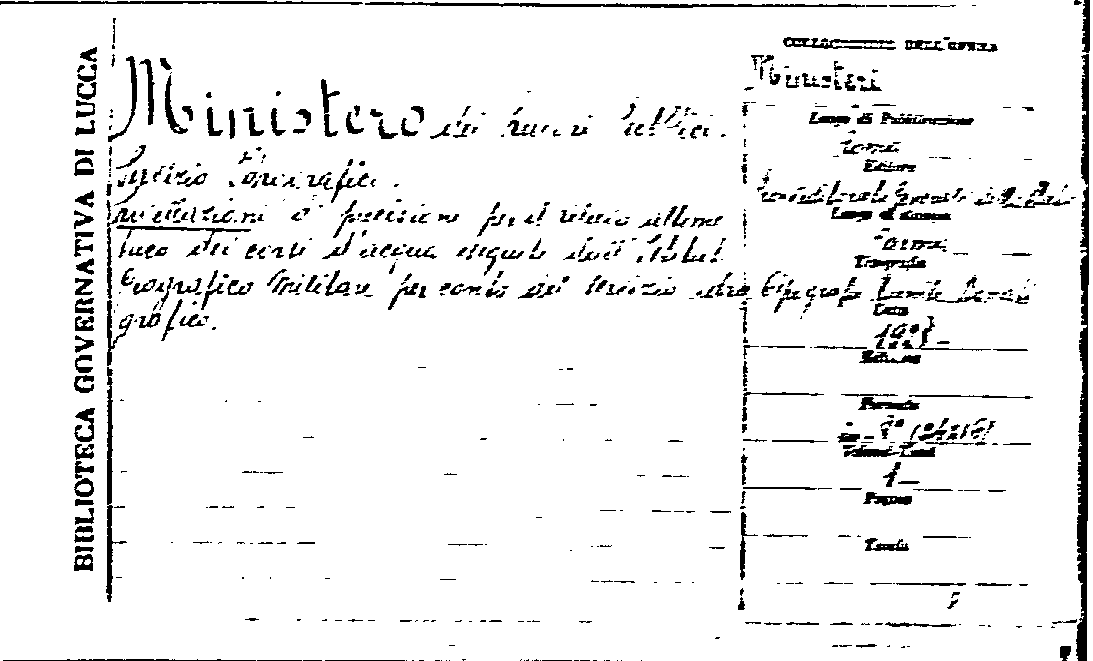 BIBLIOTECA GOVERNATIVA DI LUCCA
Ministero dei Lavori Pubblici.
Servizio Idrografico.
Livellazioni di precisione per il rilievo altime
trico dei corsi d'acqua eseguite dall'Istituto
Geografico Militare per conto del servizio idro
grafico.
COLLOCAZIONE DELL'OPERA
Ministeri
Luogo di Pubblicazione
Roma
Editore
Provveditorato Generale dello Stato
Luogo di stampa
Roma
Tipografia
Tipografo
Data
Edizione
Formato
in-8°
Volumi-Tomi
1
Pagine
Tavole